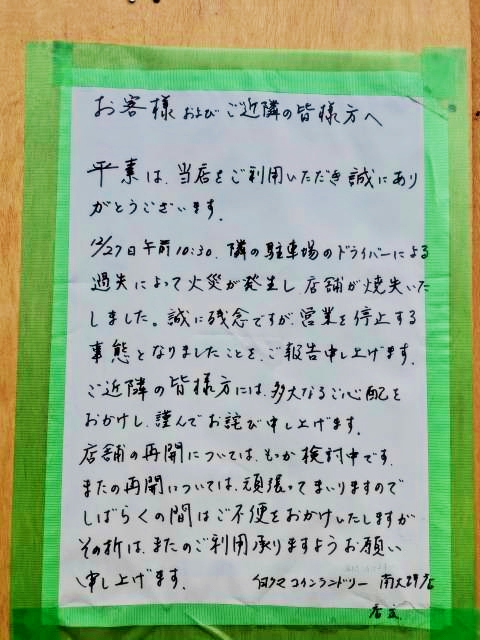 お客様およびご近隣の皆様方へ
平素は、当店をご利用いただき誠にあり
がとうございます。
12/27日午前10:30、隣の駐車場のドライバーによる
過失によって火災が発生し店舗が焼失いた
しました。誠に残念ですが、営業を停止する
事態となりましたことを、ご報告申し上げます。
ご近隣の皆様方には、多大なるご心配を
おかけし、謹んでお詫び申し上げます。
店舗の再開については、もっか検討中です。
またの再開については、頑張ってまいりますので
しばらくの間はご不便をおかけいたしますが
その折は、またのご利用承りますようお願い
申し上げます。 白クマコインランドリー 南大野店
店主